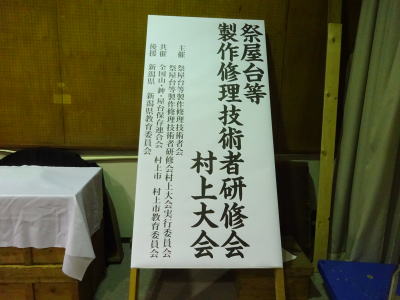 祭屋台等
製作修理技術者研修会
村上大会
主催 祭屋台等製作修理技術者会
祭屋台等製作修理技術者研修会村上大会実行委員会
共催 全国山・鉾・屋台保存連合会 村上市 村上市教育委員会
後援 新潟県 新潟県教育委員会